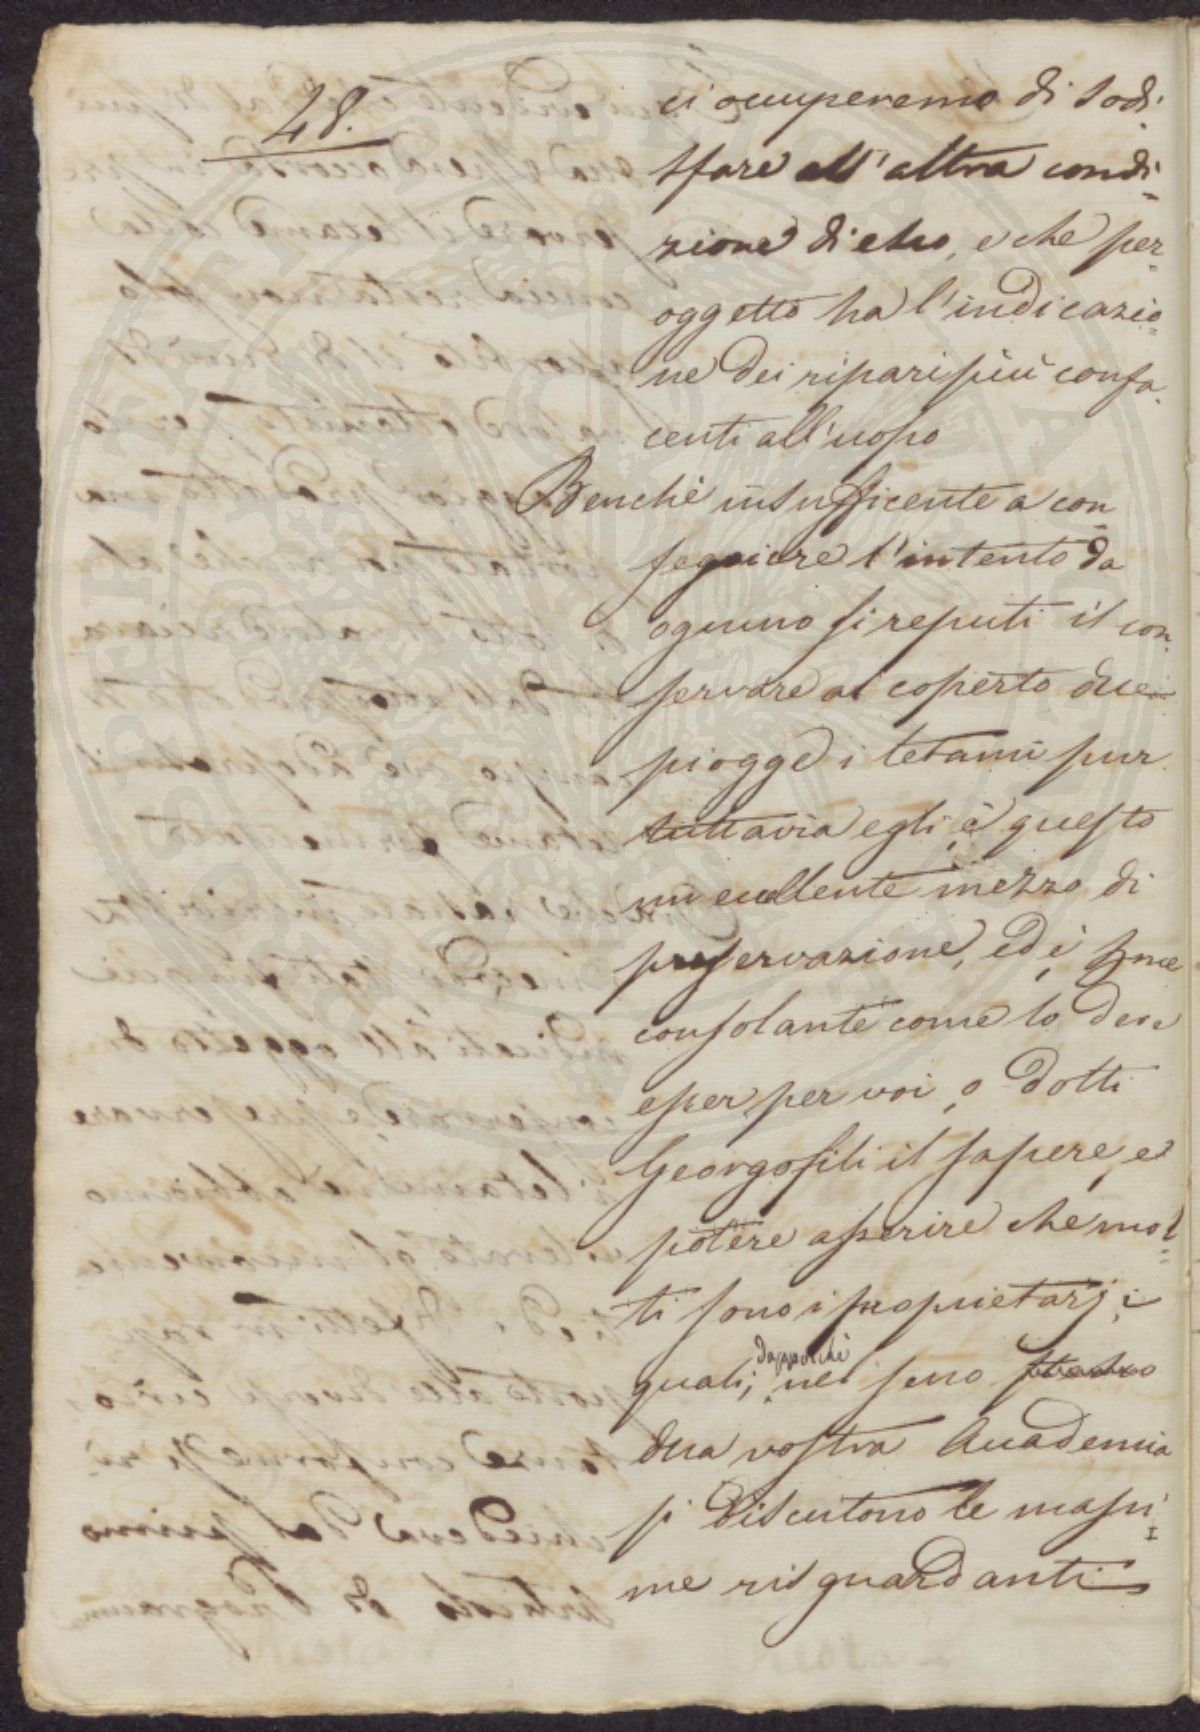 48.
ci occuperemo di sodi-
sfare all'altra condi-
zione di esso, e che per
oggetto ha l'indicazio-
ne dei ripari più confa-
centi all'uopo
Benchè insufficente a con-
seguire l'intento da
ognuno si reputi il con-
servare al coperto dalle
piogge i letami pur
tuttavia egli è questo
un eccellente mezzo di
preservazione, ed è
consolante come lo deve
esser per voi, o dotti
Georgofili il sapere, e
potere asserire che mol-
ti sono i proprietarj, i
quali, dappoichè nel seno
della vostra Accademia
si discutono le massi-
me risguardanti